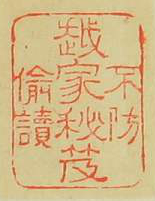 不防
越家秘笈
偷讀